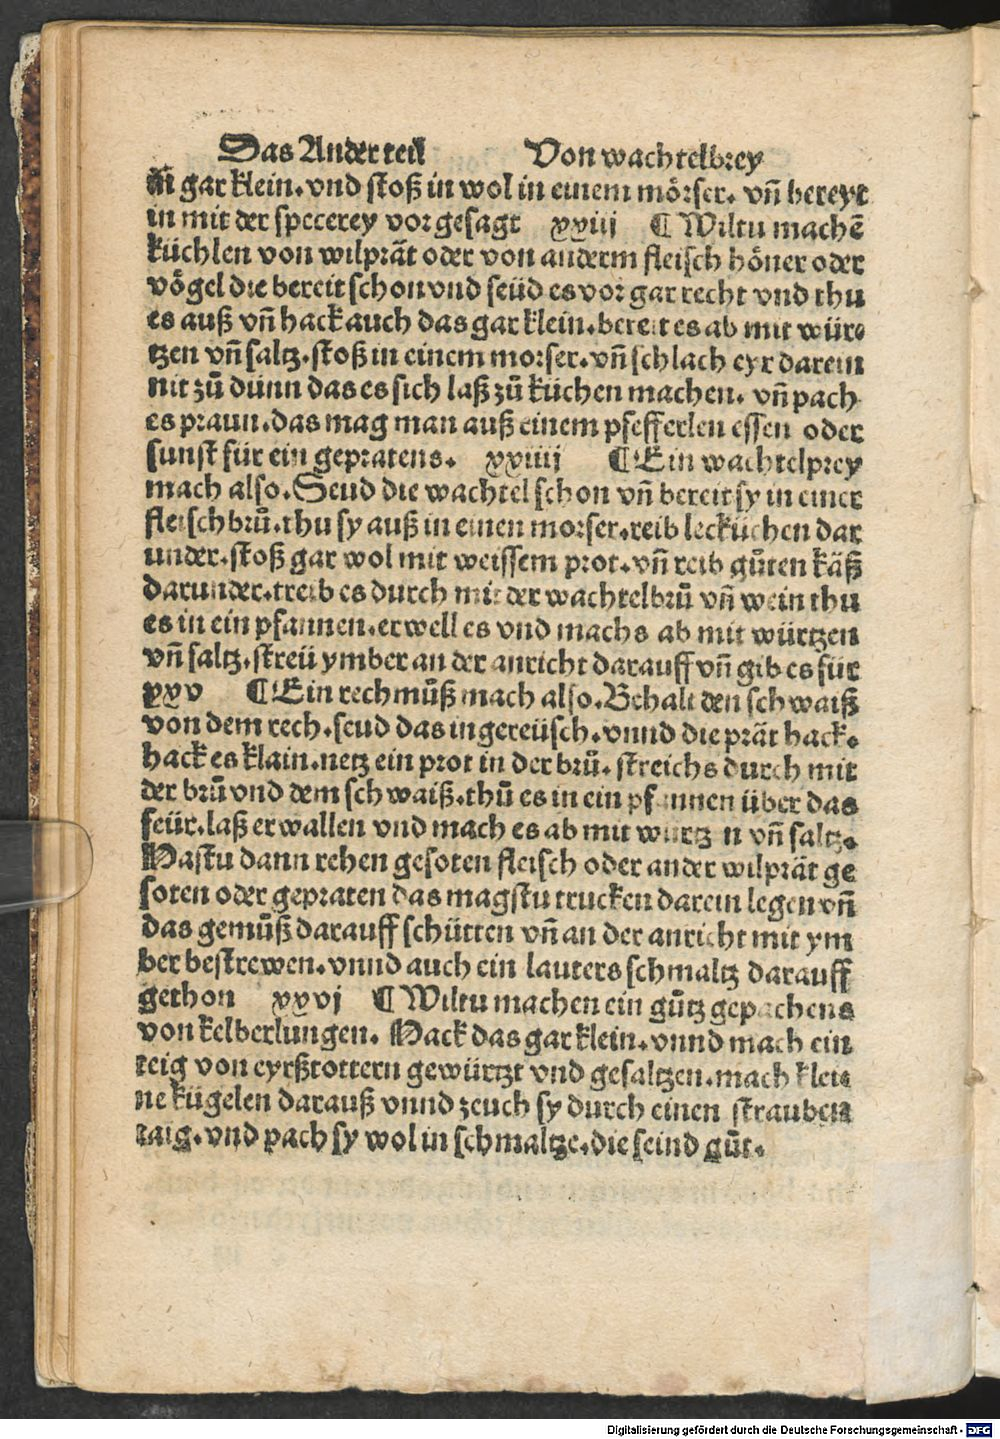 Das Ander teil Von wachtelbrey
in gar klein. vnd stoß in wol in einem mörser. vñ bereyt
in mit der specerey vor gesagt xxiij ¶ Wiltu machē
küchlen von wilprät oder von anderm fleisch höner oder
vögel die bereit schon vnd seüd es vor gar recht vnd thu
es auß vñ hack auch das gar klein. bereit es ab mit wür⸗
tzen vñ saltz. stoß in einem morser. vñ schlach eyr darein
nit zů dünn das es sich laß zů küchen machen. vñ pach
es praun. das mag man auß einem pfefferlen essen oder
sunst für ein gepratens. xxiiij ¶ Ein wachtelprey
mach also. Seud die wachtel schon vñ bereit sy in einer
fleischbrů. thu sy auß in einen morser. reib lecküchen dar
under. stoß gar wol mit weissem prot. vñ reib gůten käß
darunder. treib es durch mit der wachtelbrů vñ wein thu
es in ein pfannen. erwell es vnd machs ab mit würtzen
vñ saltz. streü ymber an der anricht darauff vñ gib es für
xxv ¶ Ein rechmůß mach also. Behalt den schwaiß
von dem rech. seud das ingereüsch. vnnd die prät hack.
hack es klain. netz ein prot in der brů. streichs durch mit
der brů vnd dem schwaiß. thů es in ein pfannen über das
feür. laß erwallen vnd mach es ab mit wurtzen vñ saltz.
Hastu dann rehen gesoten fleisch oder ander wilprät ge
soten oder gepraten das magstu trucken darein legen vñ
das gemůß darauff schütten vñ an der anricht mit ym
ber bestrewen. vnnd auch ein lauters schmaltz darauff
gethon xxvj ¶ Wiltu machen ein gůtz gepachens
von kelberlungen. Hack das gar klein. vnnd mach ein
teig von eyrßtottern gewürtzt vnd gesaltzen. mach klei⸗
ne kügelen darauß vnnd zeuch sy durch einen strauben
taig. vnd pach sy wol in schmaltze. die seind gůt.
Digitalisierung gefördert durch die Deutsche Forschungsgemeinschaft - DFG